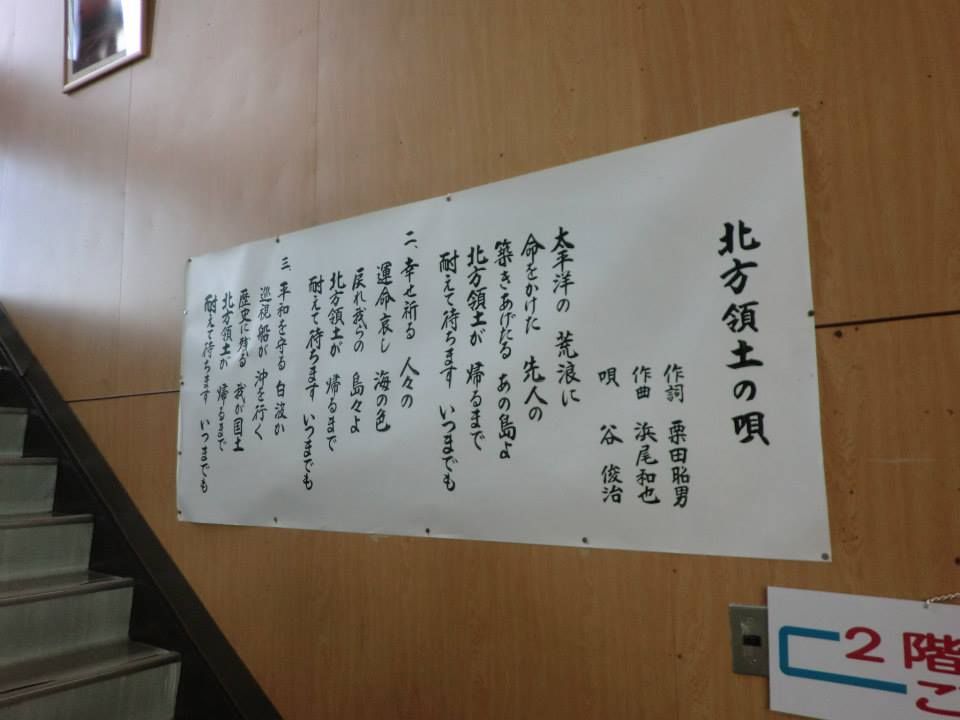 北方領土の唄
作詞 栗田昭男
作曲 浜尾和也
唄 谷 俊治
太平洋の 荒浪に
命をかけた 先人の
築きあげたる あの島よ
北方領土が 帰るまで
耐えて待ちます いつまでも
二、幸せ祈る 人々の
運命哀し 海の色
戻れ我らの 島々よ
北方領土が 帰るまで
耐えて待ちます いつまでも
三、平和を守る 白波か
巡視船が 沖を行く
歴史に残る 我が国土
北方領土の 帰るまで
耐えて待ちます いつまでも
2階
こ